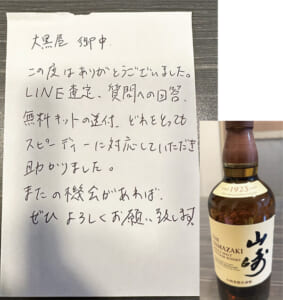 大黒屋 御中
この度はありがとうございました。
LINE査定、質問への回答、
無料キットの送付、どれをとっても
スピーディーに対応していただき
助かりました。
またの機会があれば、
ぜひよろしくお願い致します
1923
THE
YAMAZAKI
山崎